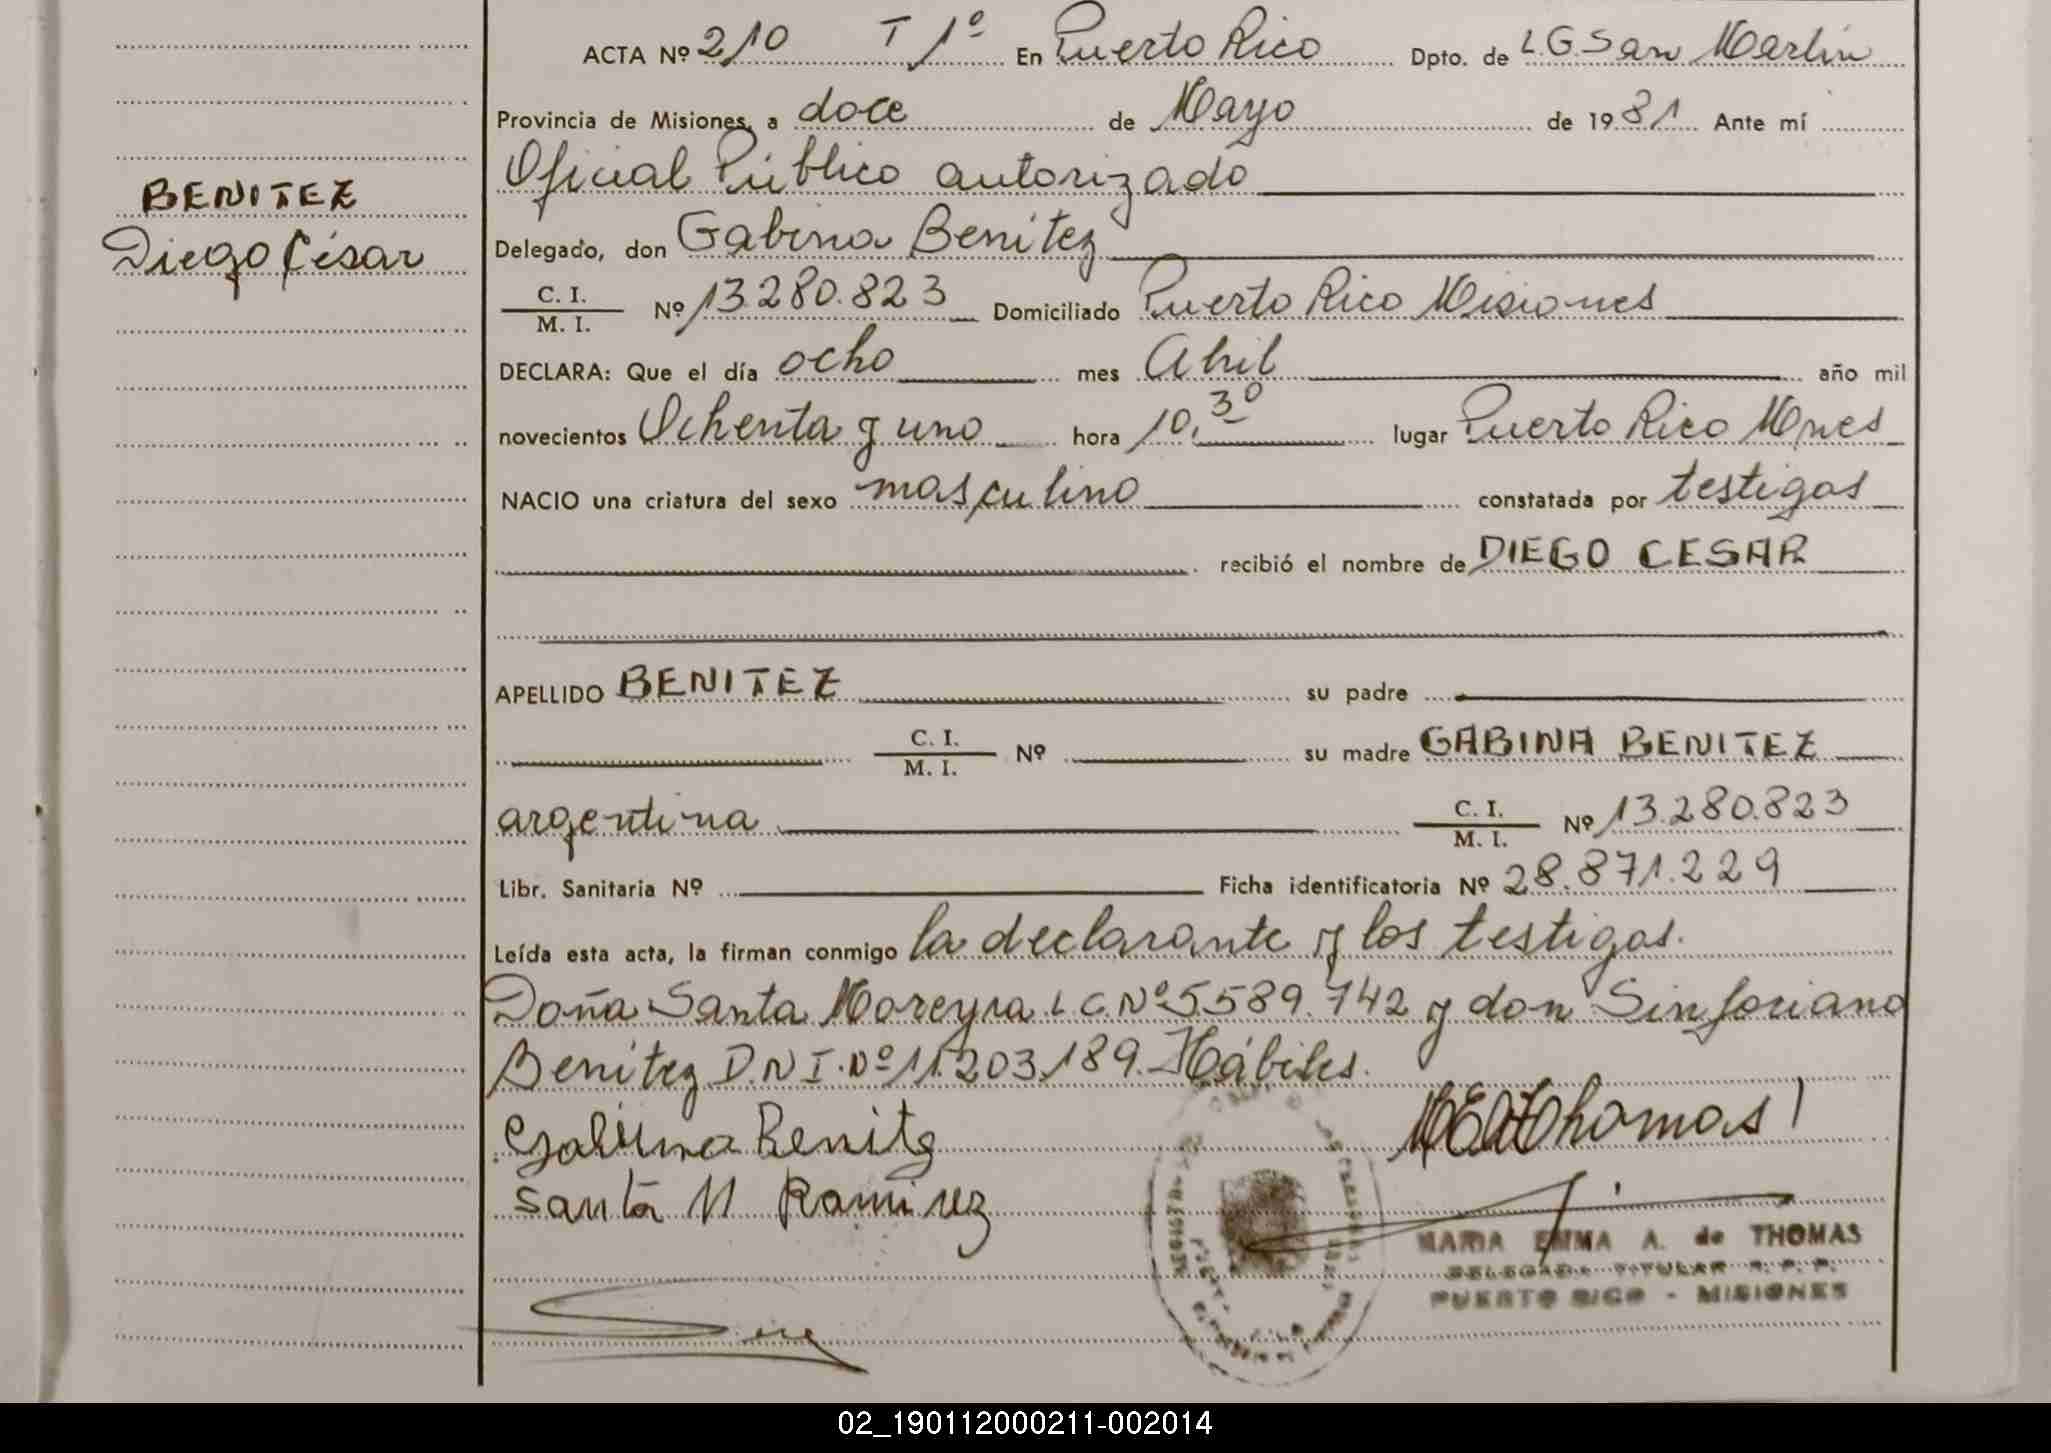 ACTA Nº 210 T 1º En Puerto Rico Dpto. de L.G. San Martín
Provincia de Misiones, a doce de Mayo de 1981 Ante mí
Oficial Público autorizado
BENITEZ
Diego César
Delegado, don Gabina Benítez
C. I.
M. I. Nº 13.280.823 Domiciliado Puerto Rico Misiones
DECLARA: Que el día ocho mes Abril año mil
novecientos Ochenta y uno hora 10,30 lugar Puerto Rico Mnes
NACIO una criatura del sexo masculino constatada por testigos
recibió el nombre de DIEGO CESAR
APELLIDO BENITEZ su padre
C. I.
M. I. Nº su madre GABINA BENITEZ
argentina C. I.
M. I. Nº 13.280.823
Libr. Sanitaria Nº Ficha identificatoria Nº 28.871.229
Leída esta acta, la firman conmigo la declarante y los testigos.
Doña Santa Moreyra L.C. Nº 5.589.742 y don Sinforiano
Benítez D.N.I. Nº 11.203.189. Hábiles.
Gabina Benitez
Santa M Ramirez
MARIA EMMA A. de THOMAS
DELEGADA TITULAR R. P. P.
PUERTO RICO - MISIONES
02_190112000211-002014